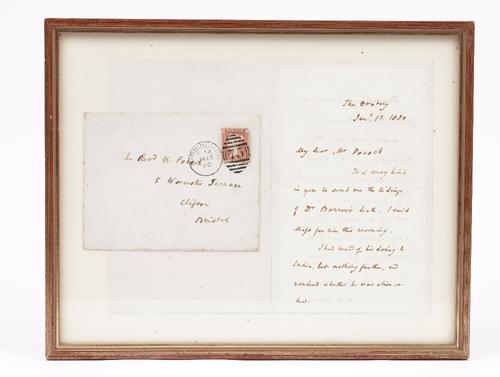 The Revd N. Pocock
5 Worcester Terrace
Clifton
Bristol
75
The Oratory
Jany 13. 1880
My dear Mr Pocock
It is very kind
in you to send me the tidings
of Dr Barrow's death. I said
Mass for him this morning.
I had heard of his going to
India, but nothing further, and
wondered whether he was alive or
dead.